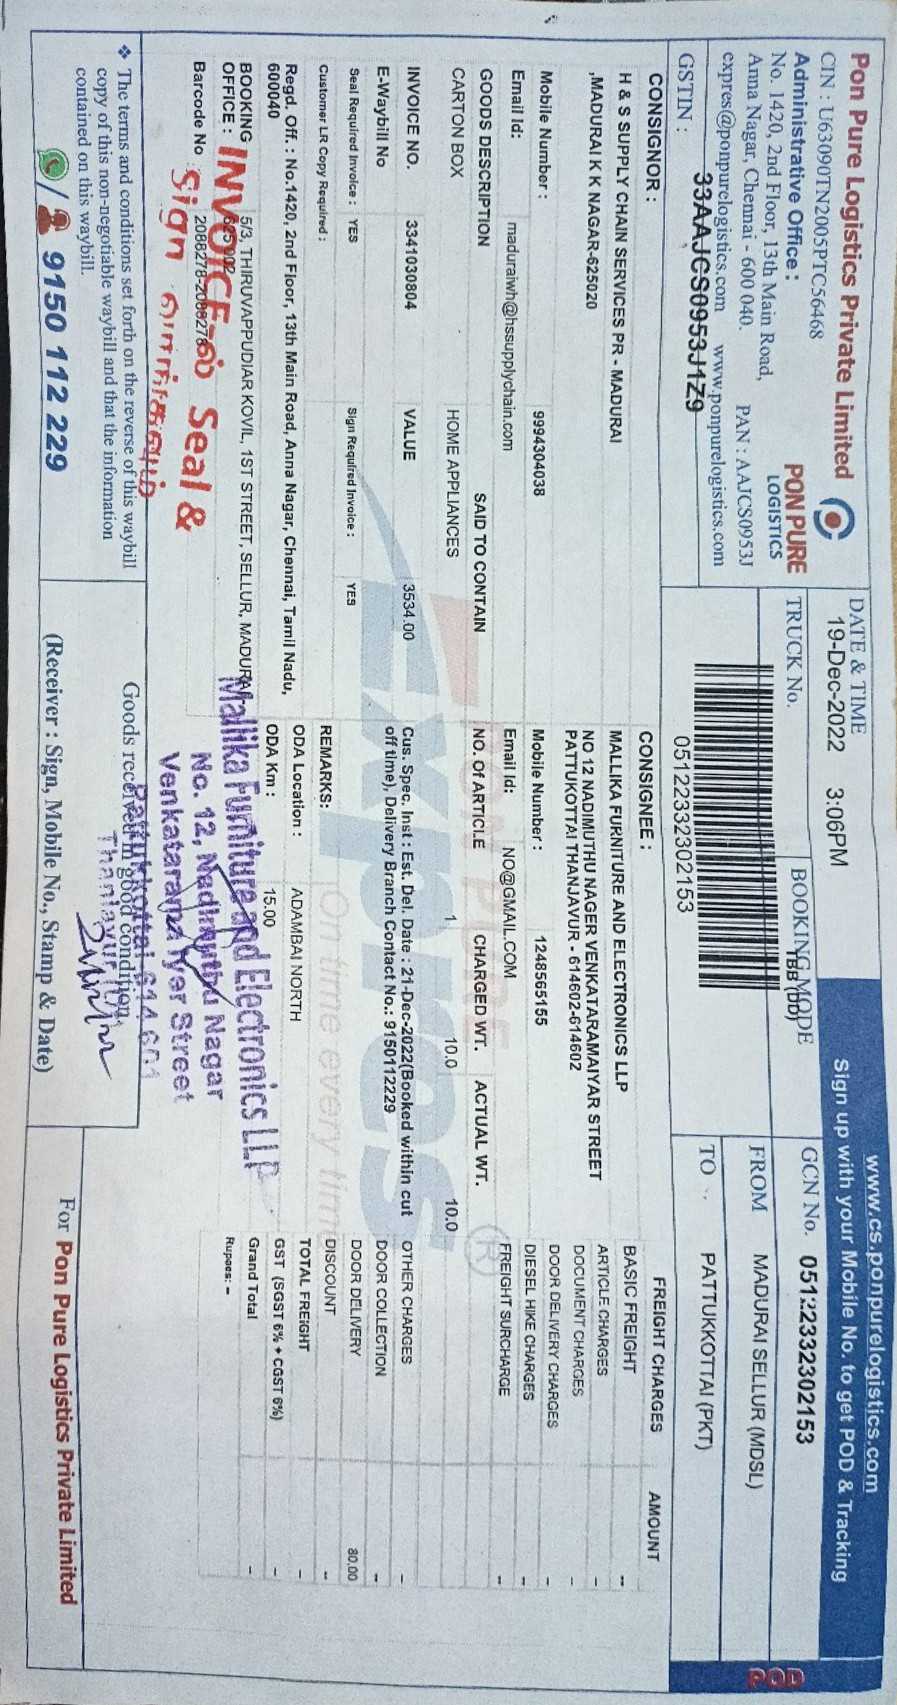 Pon Pure Logistics Private Limited
CIN : U63090TN2005PTC56468
Administrative Office :
No. 1420, 2nd Floor, 13th Main Road,
Anna Nagar, Chennai - 600 040. PAN : AAJCS0953J
expres@ponpurelogistics.com www.ponpurelogistics.com
PON PURE
LOGISTICS
GSTIN : 33AAJCS0953J1Z9
DATE & TIME
19-Dec-2022 3:06PM
TRUCK No.
BOOKING MODE
YBB (DD)
0512232302153
www.cs.ponpurelogistics.com
Sign up with your Mobile No. to get POD & Tracking
GCN No. 0512232302153
FROM MADURAI SELLUR (MDSL)
TO PATTUKKOTTAI (PKT)
POD
CONSIGNOR :
H & S SUPPLY CHAIN SERVICES PR - MADURAI
,MADURAI K K NAGAR-625020
Mobile Number : 9994304038
Email Id: maduraiwh@hssupplychain.com
CONSIGNEE :
MALLIKA FURNITURE AND ELECTRONICS LLP
NO 12 NADIMUTHU NAGER VENKATARAMAIYAR STREET
PATTUKOTTAI THANJAVUR - 614602-614602
Mobile Number : 1248565155
Email Id: NO@GMAIL.COM
GOODS DESCRIPTION SAID TO CONTAIN NO. Of ARTICLE CHARGED WT. ACTUAL WT.
CARTON BOX HOME APPLIANCES 1 10.0 10.0
INVOICE NO. 3341030804 VALUE 3534.00
E-Waybill No
Cus. Spec. Inst : Est. Del. Date : 21-Dec-2022(Booked within cut
off time), Delivery Branch Contact No.: 9150112229
Seal Required Invoice : YES Sign Required Invoice : YES
Customer LR Copy Required :
REMARKS:
Regd. Off. : No.1420, 2nd Floor, 13th Main Road, Anna Nagar, Chennai, Tamil Nadu,
600040
ODA Location : ADAMBAI NORTH
ODA Km : 15.00
BOOKING OFFICE : 5/3, THIRUVAPPUDIAR KOVIL, 1ST STREET, SELLUR, MADURAI
625 002
Barcode No 2088278-2088278
INVOICE-ல் Seal &
Sign வாங்கவும்
FREIGHT CHARGES AMOUNT
BASIC FREIGHT --
ARTICLE CHARGES -
DOCUMENT CHARGES -
DOOR DELIVERY CHARGES -
DIESEL HIKE CHARGES -
FREIGHT SURCHARGE -
OTHER CHARGES -
DOOR COLLECTION -
DOOR DELIVERY 80.00
DISCOUNT --
TOTAL FREIGHT -
GST (SGST 6% + CGST 6%) -
Grand Total -
Rupees: -
PON PURE
expres
®
On time every time
Mallika Furniture and Electronics LLP
No. 12, Nadimuthu Nagar
Venkatarama Iyer Street
Pattukkottai 614 601
Thanjavur
❖ The terms and conditions set forth on the reverse of this waybill
copy of this non-negotiable waybill and that the information
contained on this waybill.
/ 9150 112 229
Goods received in good condition
(Receiver : Sign, Mobile No., Stamp & Date)
For Pon Pure Logistics Private Limited